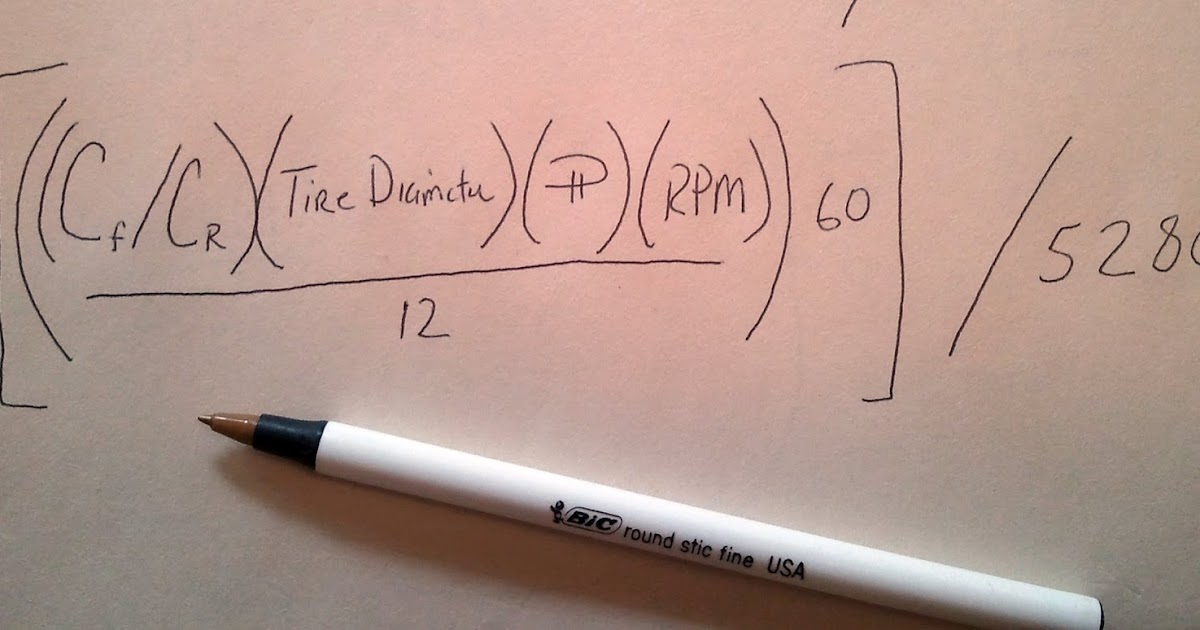 [((Cf/CR)(Tire Diameter)(π)(RPM)) 60] / 5280
12
BiC round stic fine USA